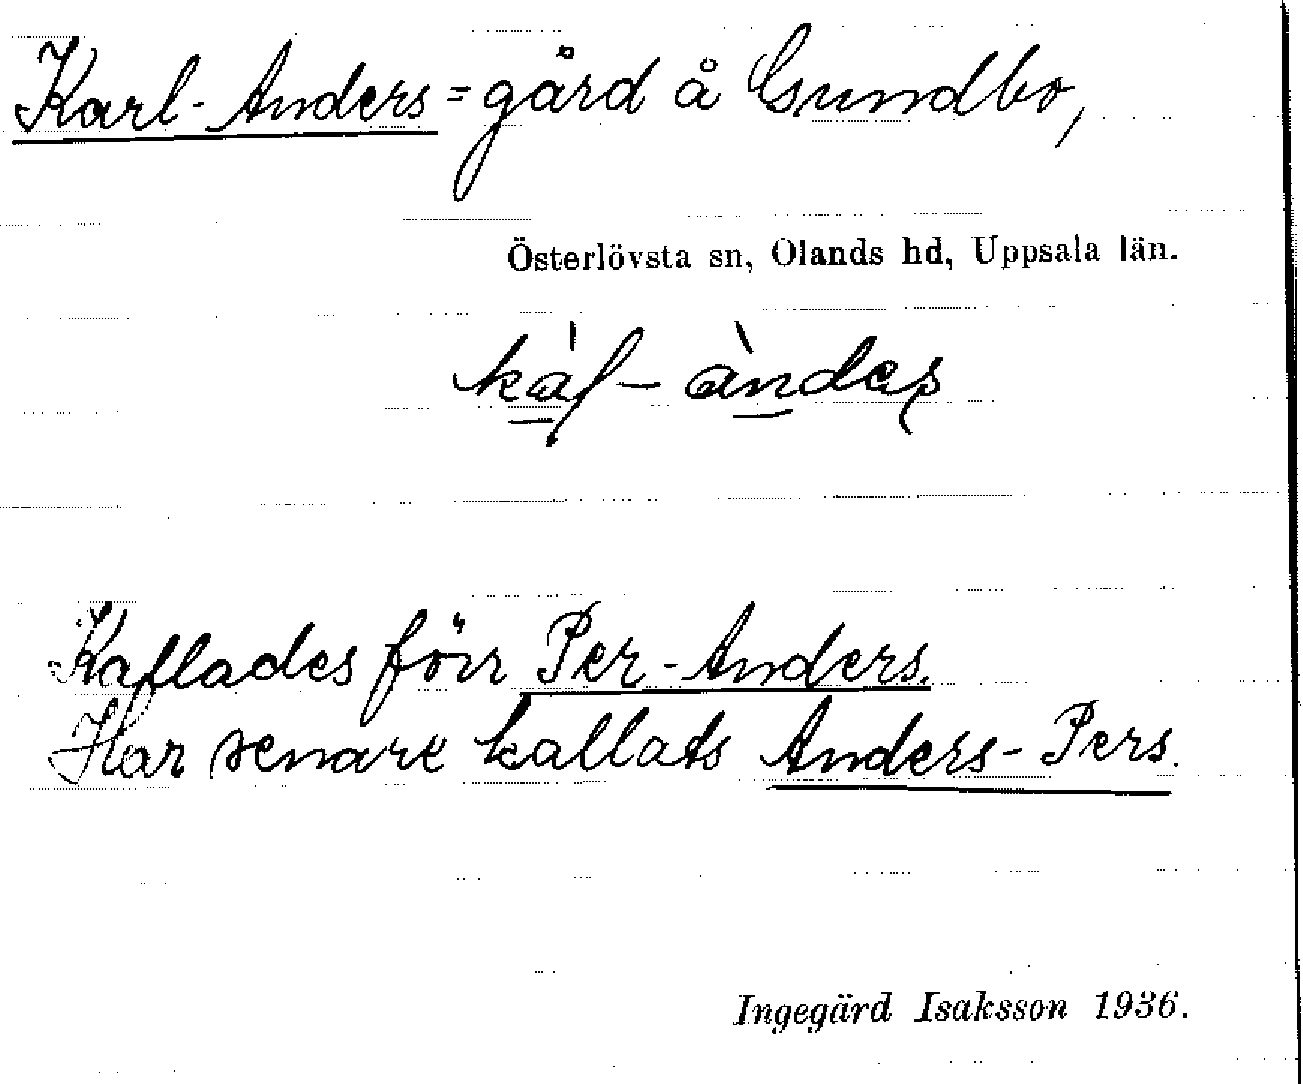 Karl-Anders = gård å Gundbo,
Österlövsta sn, Olands hd, Uppsala län.
Kallades förr Per-Anders.
Har senare kallats Anders-Pers.
Ingegärd Isaksson 1936.